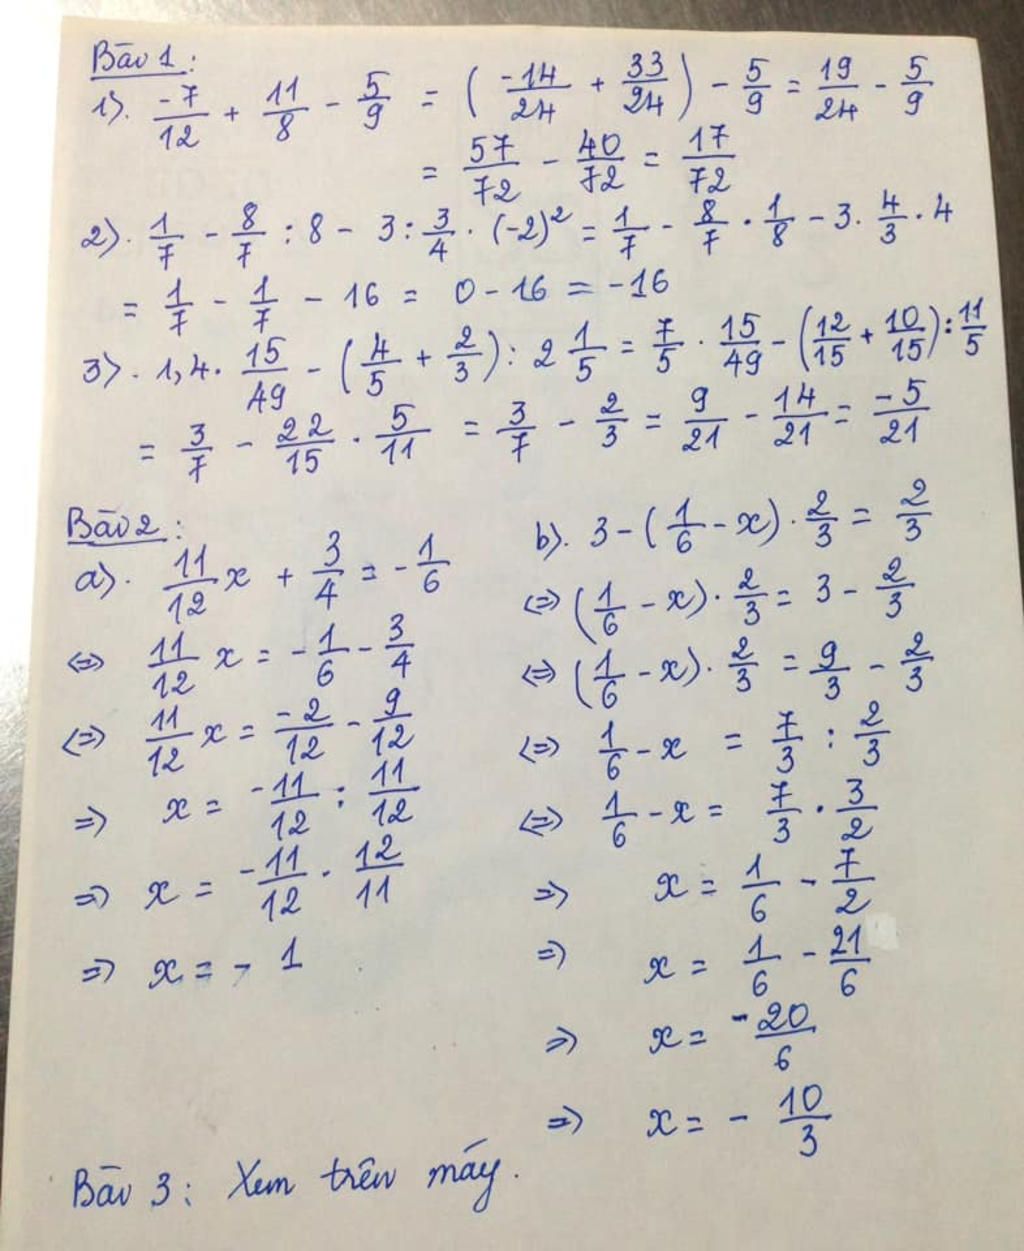 Bài 1:
1). -7/12 + 11/8 - 5/9 = (-14/24 + 33/24) - 5/9 = 19/24 - 5/9
= 57/72 - 40/72 = 17/72
2). 1/7 - 8/7 : 8 - 3 : 3/4 . (-2)² = 1/7 - 8/7 . 1/8 - 3. 4/3 . 4
= 1/7 - 1/7 - 16 = 0 - 16 = -16
3). 1,4. 15/49 - (4/5 + 2/3) : 2 1/5 = 7/5 . 15/49 - (12/15 + 10/15) : 11/5
= 3/7 - 22/15 . 5/11 = 3/7 - 2/3 = 9/21 - 14/21 = -5/21
Bài 2:
a). 11/12 x + 3/4 = -1/6
⇔ 11/12 x = -1/6 - 3/4
⇔ 11/12 x = -2/12 - 9/12
⇒ x = -11/12 : 11/12
⇒ x = -11/12 . 12/11
⇒ x = - 1
b). 3 - (1/6 - x) . 2/3 = 2/3
⇔ (1/6 - x) . 2/3 = 3 - 2/3
⇔ (1/6 - x) . 2/3 = 9/3 - 2/3
⇔ 1/6 - x = 7/3 : 2/3
⇔ 1/6 - x = 7/3 . 3/2
⇒ x = 1/6 - 7/2
⇒ x = 1/6 - 21/6
⇒ x = -20/6
⇒ x = - 10/3
Bài 3: Xem trên máy.